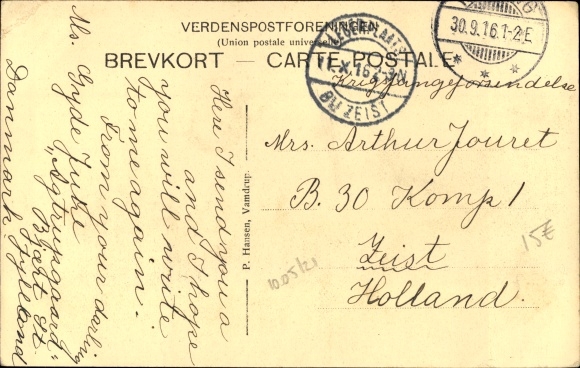 VERDENSPOSTFORENINGEN
(Union postale universelle)
BREVKORT — CARTE POSTALE
30.9.16.1-2 E
LEGERPLAATS
X.16. N
BIJ ZEIST
Krigsfangeforsendelse
Mrs. Arthur Jouret
B. 30 Komp 1
Zeist
Holland.
15€
1005/21
P. Hansen, Vamdrup.
Here I send you a
and I hope
you will write
to me again.
From your darling
Ms. Gyde Juhe
"Agtrupgaard"
Bjært St.
Danmark Jylland